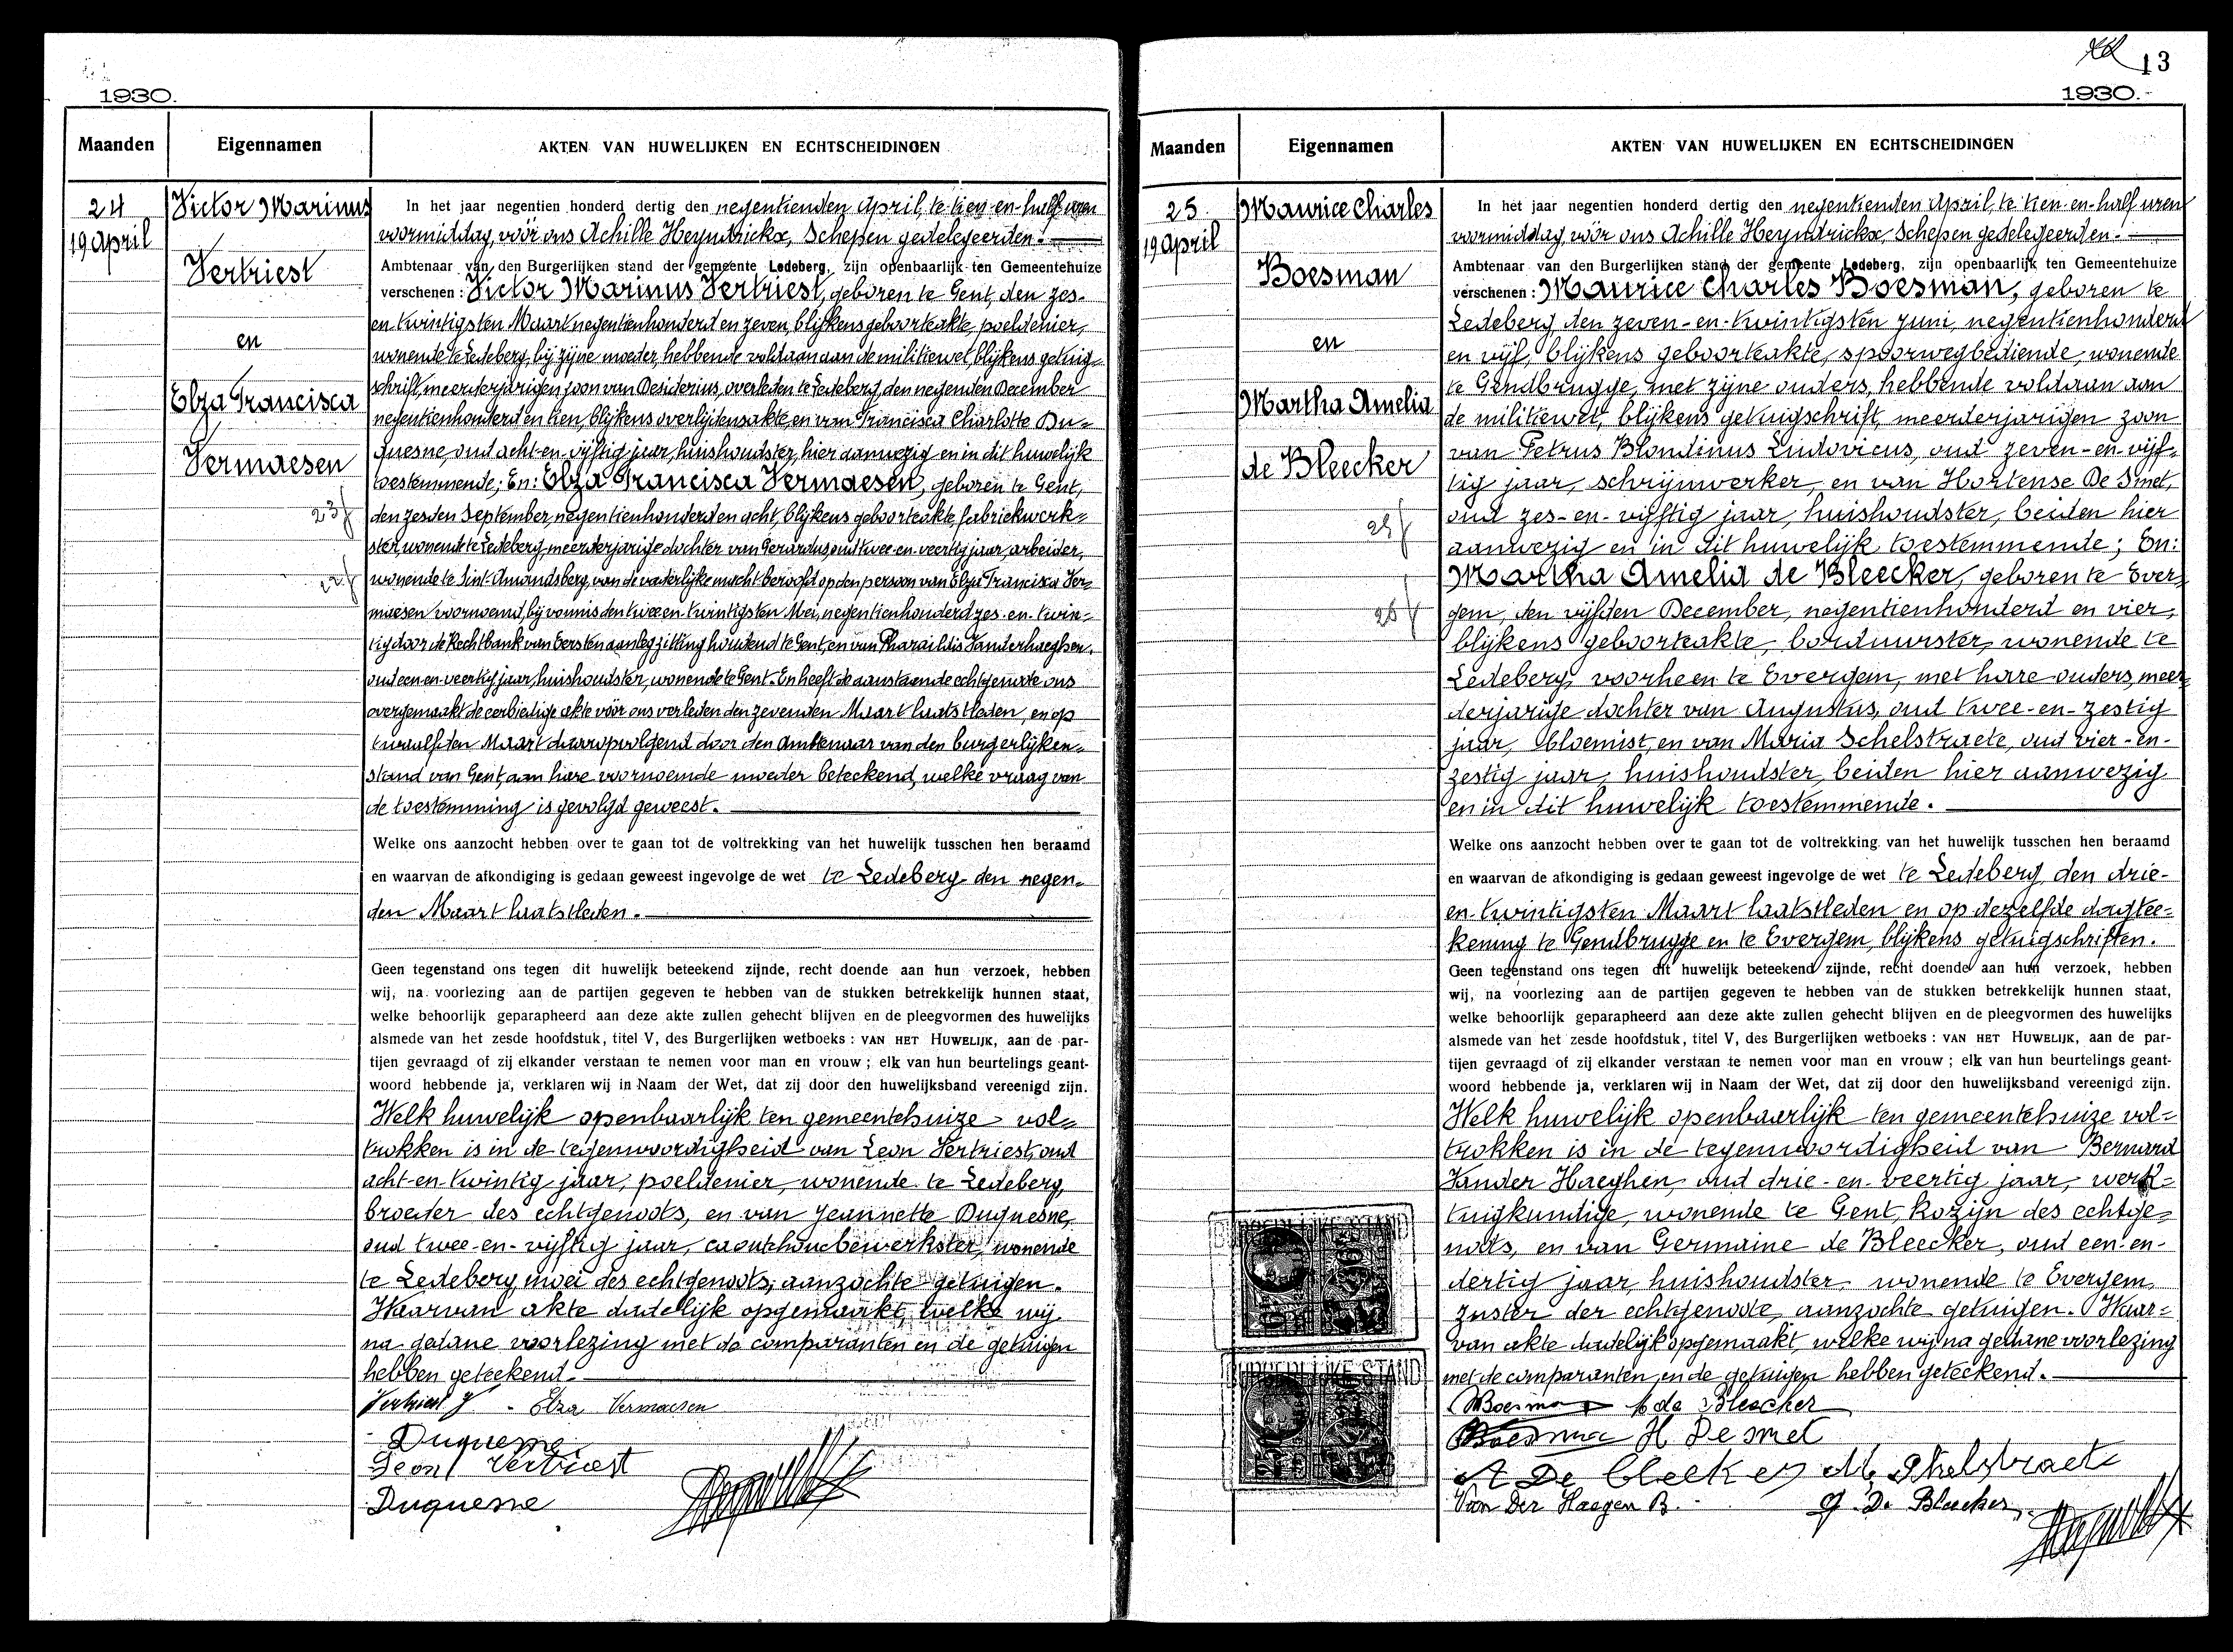 1930.
Maanden
Eigennamen
AKTEN VAN HUWELIJKEN EN ECHTSCHEIDINGEN
24
19 April
Victor Marinus
Vertriest
en
Elza Francisca
Vermaesen
23j
22j
In het jaar negentien honderd dertig den negentienden April, te tien-en-half uren
voormiddag, vóór ons Achille Heyndrickx, Schepen gedelegeerden.
Ambtenaar van den Burgerlijken stand der gemeente Ledeberg, zijn openbaarlijk ten Gemeentehuize
verschenen : Victor Marinus Vertriest, geboren te Gent, den zes-
en-twintigsten Maart negentienhonderd en zeven, blijkens geboorteakte, poeldenier,
wonende te Ledeberg, bij zijne moeder, hebbende voldaan aan de militiewet, blijkens getuig-
schrift, meerderjarigen zoon van Desiderius, overleden te Ledeberg, den negenden December
negentienhonderd en tien, blijkens overlijdensakte, en van Francisca Charlotte Du-
quesne, oud acht-en-vijftig jaar, huishoudster, hier aanwezig en in dit huwelijk
toestemmende; En: Elza Francisca Vermaesen, geboren te Gent,
den zesden September, negentienhonderd en acht, blijkens geboorteakte, fabriekwerk-
ster, wonende te Ledeberg, meerderjarige dochter van Gerardus, oud twee-en-veertig jaar, arbeider,
wonende te Sint-Amandsberg, van de vaderlijke macht beroofd op den persoon van Elza Francisca Ver-
maesen voornoemd, bij vonnis den twee-en-twintigsten Mei, negentienhonderd zes-en-twin-
tig door de Rechtbank van Eersten aanleg zitting houdend te Gent, en van Pharaïldis Vanderhaeghen,
oud een-en-veertig jaar, huishoudster, wonende te Gent. En heeft de aanstaande echtgenoote ons
overgemaakt de eerbiedige akte vóór ons verleden den zevenden Maart laatstleden, en op
twaalfden Maart daaropvolgend door den Ambtenaar van den burgerlijken-
stand van Gent, aan hare voornoemde moeder beteekend, welke vraag van
de toestemming is gevolgd geweest.
Welke ons aanzocht hebben over te gaan tot de voltrekking van het huwelijk tusschen hen beraamd
en waarvan de afkondiging is gedaan geweest ingevolge de wet te Ledeberg den negen-
den Maart laatstleden.
Geen tegenstand ons tegen dit huwelijk beteekend zijnde, recht doende aan hun verzoek, hebben
wij, na voorlezing aan de partijen gegeven te hebben van de stukken betrekkelijk hunnen staat,
welke behoorlijk geparapheerd aan deze akte zullen gehecht blijven en de pleegvormen des huwelijks
alsmede van het zesde hoofdstuk, titel V, des Burgerlijken wetboeks : VAN HET HUWELIJK, aan de par-
tijen gevraagd of zij elkander verstaan te nemen voor man en vrouw ; elk van hun beurtelings geant-
woord hebbende ja, verklaren wij in Naam der Wet, dat zij door den huwelijksband vereenigd zijn.
Welk huwelijk openbaarlijk ten gemeentehuize vol-
trokken is in de tegenwoordigheid van Leon Vertriest, oud
acht-en-twintig jaar, poeldenier, wonende te Ledeberg,
broeder des echtgenoots, en van Jeannette Duquesne,
oud twee-en-vijftig jaar, caoutchoucbewerkster, wonende
te Ledeberg, moei des echtgenoots, aanzochte getuigen.
Waarvan akte dadelijk opgemaakt, welke wij
na gedane voorlezing met de comparanten en de getuigen
hebben geteekend.
Vertriest V. Elza Vermaesen
Duquesne
Leon Vertriest
Duquesne
13
1930.
Maanden
Eigennamen
AKTEN VAN HUWELIJKEN EN ECHTSCHEIDINGEN
25.
19 April
Maurice Charles
Boesman
en
Martha Amelia
de Bleecker
25j
In het jaar negentien honderd dertig den negentienden April, te tien-en-half uren
voormiddag, vóór ons Achille Heyndrickx, Schepen gedelegeerden.
Ambtenaar van den Burgerlijken stand der gemeente Ledeberg, zijn openbaarlijk ten Gemeentehuize
verschenen : Maurice Charles Boesman, geboren te
Ledeberg den zeven-en-twintigsten Juni, negentienhonderd
en vijf, blijkens geboorteakte, spoorwegbediende, wonende
te Gendbrugge, met zijne ouders, hebbende voldaan aan
de militiewet, blijkens getuigschrift, meerderjarigen zoon
van Petrus Blondinus Ludovicus, oud zeven-en-vijf-
tig jaar, schrijnwerker, en van Hortense De Smet,
oud zes-en-vijftig jaar, huishoudster, beiden hier
aanwezig en in dit huwelijk toestemmende; En:
Martha Amelia de Bleecker, geboren te Ever-
gem, den vijfden December, negentienhonderd en vier,
blijkens geboorteakte, borduurster, wonende te
Ledeberg, voorheen te Evergem, met hare ouders, meer-
derjarige dochter van Augustus, oud twee-en-zestig
jaar, bloemist, en van Maria Schelstraete, oud vier-en-
zestig jaar, huishoudster, beiden hier aanwezig
en in dit huwelijk toestemmende.
Welke ons aanzocht hebben over te gaan tot de voltrekking van het huwelijk tusschen hen beraamd
en waarvan de afkondiging is gedaan geweest ingevolge de wet te Ledeberg, den drie-
en-twintigsten Maart laatstleden en op dezelfde dagtee-
kening te Gendbrugge en te Evergem, blijkens getuigschriften.
Geen tegenstand ons tegen dit huwelijk beteekend zijnde, recht doende aan hun verzoek, hebben
wij, na voorlezing aan de partijen gegeven te hebben van de stukken betrekkelijk hunnen staat,
welke behoorlijk geparapheerd aan deze akte zullen gehecht blijven en de pleegvormen des huwelijks
alsmede van het zesde hoofdstuk, titel V, des Burgerlijken wetboeks : VAN HET HUWELIJK, aan de par-
tijen gevraagd of zij elkander verstaan te nemen voor man en vrouw ; elk van hun beurtelings geant-
woord hebbende ja, verklaren wij in Naam der Wet, dat zij door den huwelijksband vereenigd zijn.
Welk huwelijk openbaarlijk ten gemeentehuize vol-
trokken is in de tegenwoordigheid van Bernard
Vander Haeghen, oud drie-en-veertig jaar, werk-
tuigkundige, wonende te Gent, kozijn des echtge-
noots, en van Germaine de Bleecker, oud een-en-
dertig jaar, huishoudster, wonende te Evergem,
zuster der echtgenoote, aanzochte getuigen. Waar-
van akte dadelijk opgemaakt, welke wij na gedane voorlezing
met de comparanten en de getuigen hebben geteekend.
Boesman M de Bleecker
Boesman H Desmet
A De bleeker M. Schelstraete
Van Der Haegen B. G. De Bleecker
BURGERLIJKE STAND